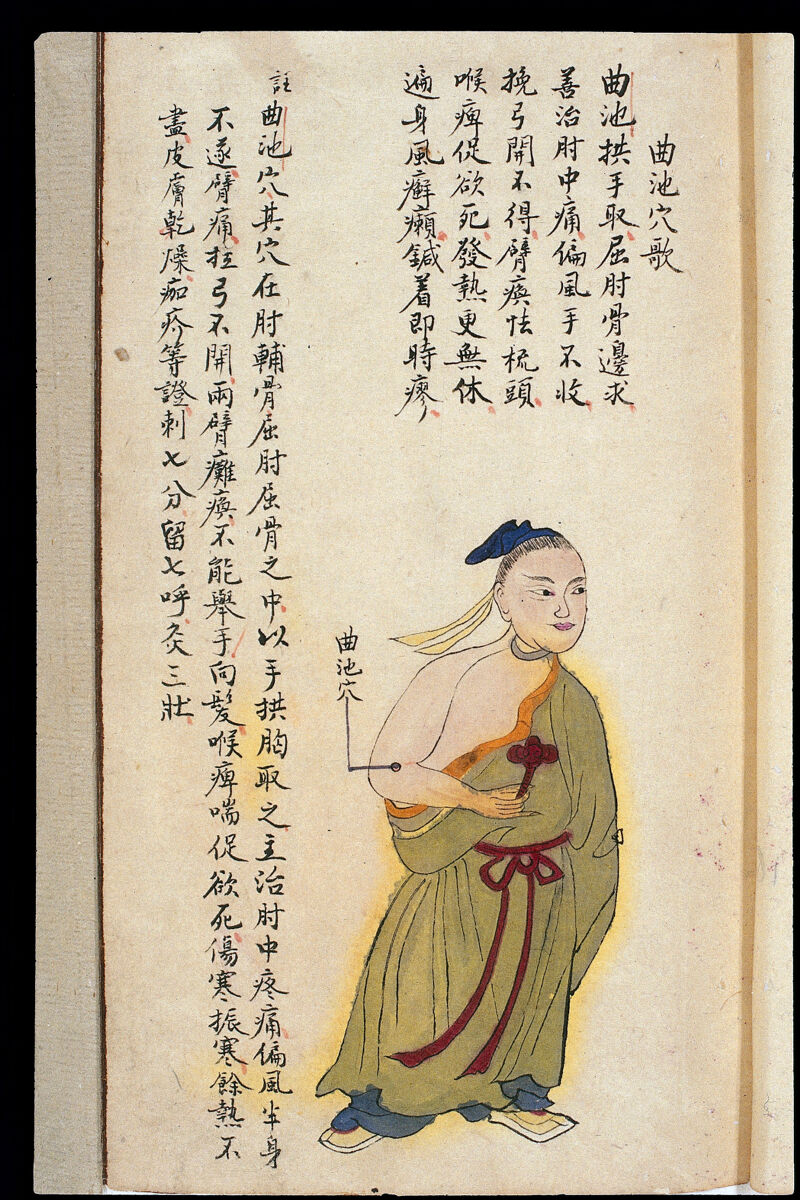 曲池穴歌
曲池拱手取屈肘骨邊求
善治肘中痛偏風手不收
挽弓開不得臂瘓怯梳頭
喉痺促欲死發熱更無休
遍身風癬癩鍼着即時瘳
註曲池穴其穴在肘輔骨屈肘屈骨之中以手拱胸取之主治肘中疼痛偏風半身
不遂臂痛拉弓不開兩臂癱瘓不能舉手向髮喉痺喘促欲死傷寒振寒餘熱不
盡皮膚乾燥痂疥等證刺七分留七呼灸三壯
曲池穴